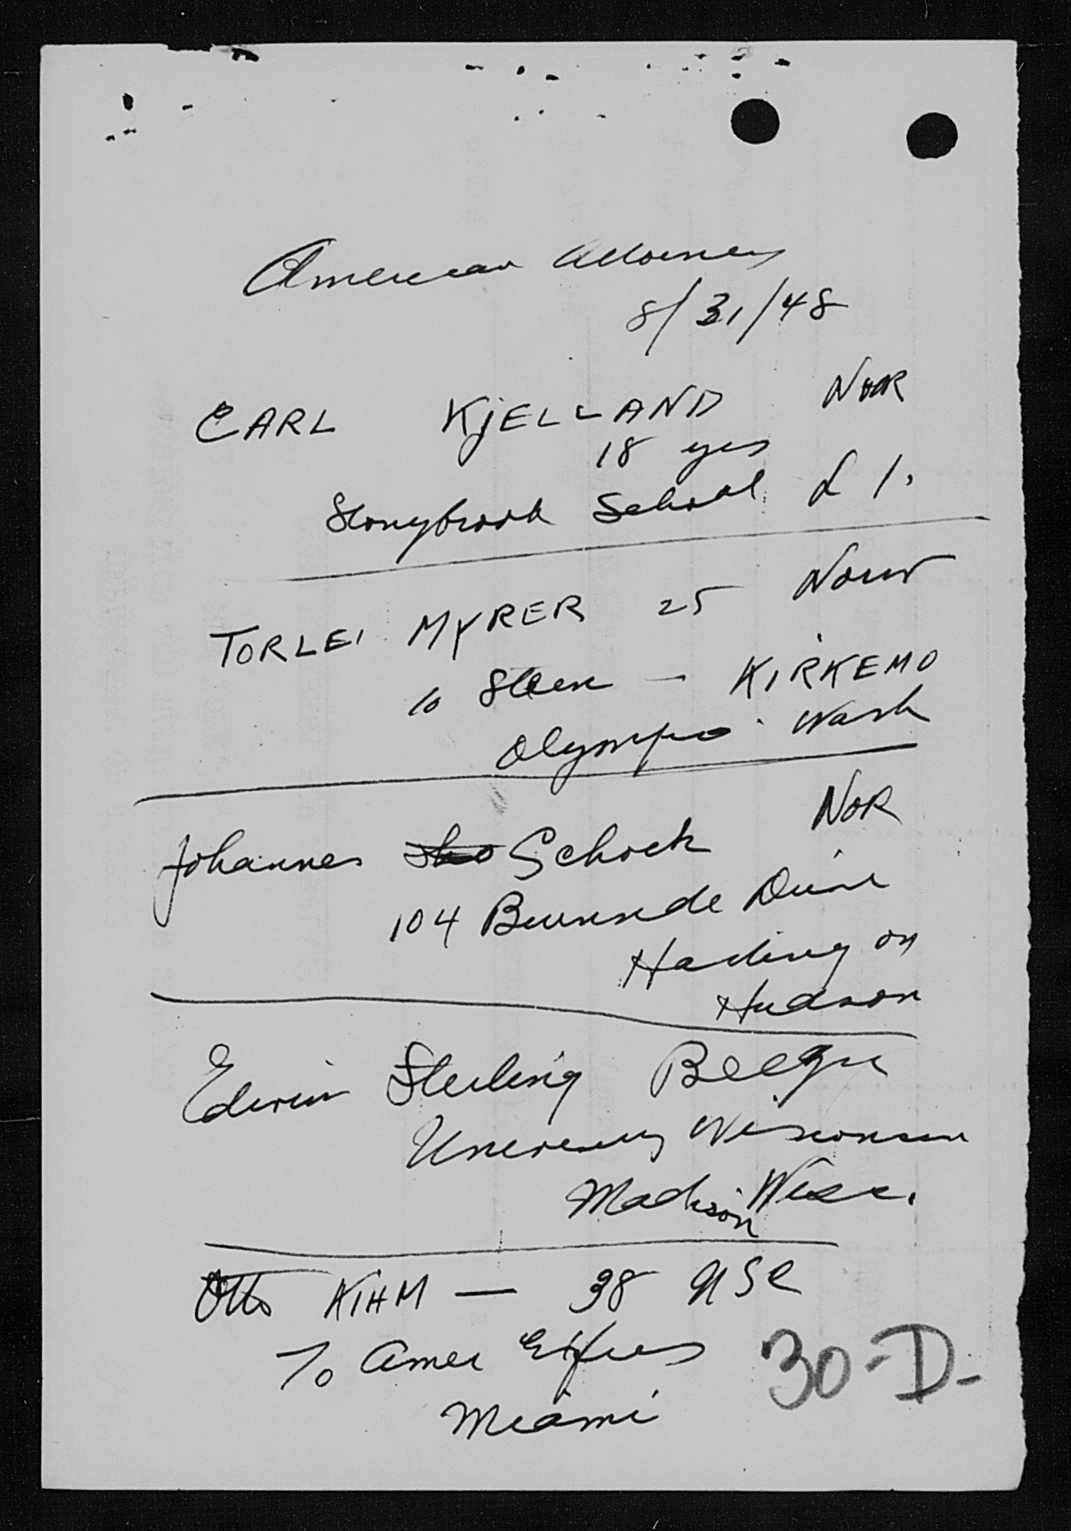 American Attorney
8/31/48
CARL KJELLAND NOR
18 yrs
Stonybrook School L I.
TORLEI MYRER 25 Norw
to Steen - KIRKEMO
Olympia Wash
Johannes Schock NOR
104 Burnside Drive
Hasting on
Hudson
Edwin Sterling
University Wisconsin
Madison Wisc.
Otto KIHM - 38 USC
To Amer Express
Miami
30-D-